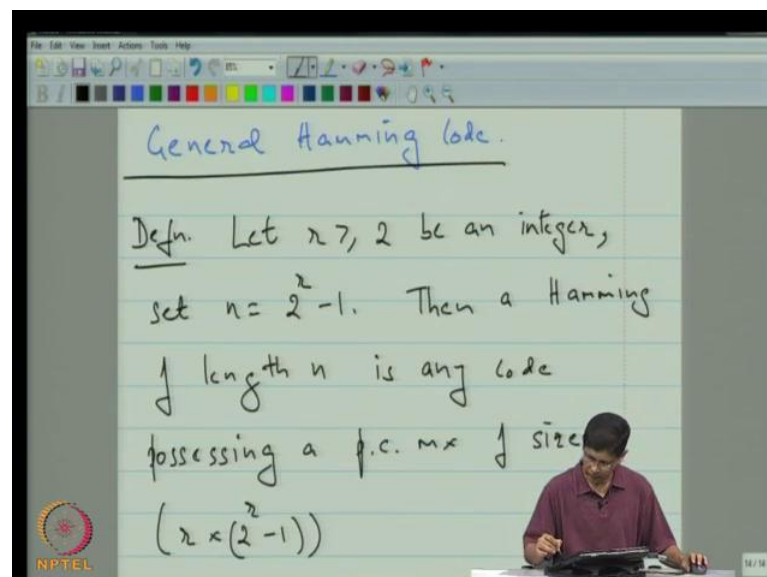 File Edit View Insert Actions Tools Help
General Hamming Code.
Defn. Let r ≥ 2 be an integer,
set n = 2^r - 1. Then a Hamming
of length n is any code
possessing a p.c. mx of size
(r × (2^r - 1))
NPTEL
14/14